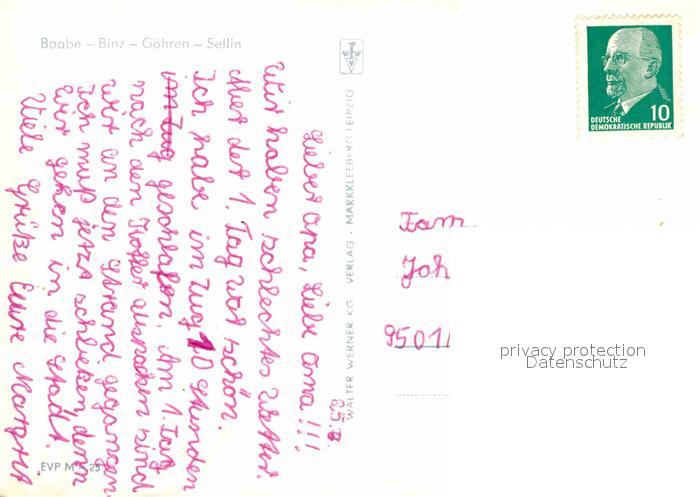 Baabe – Binz – Göhren – Sellin
Lieber Opa, Liebe Oma!!!
Wir haben schlechtes Wetter.
Aber der 1. Tag war schön.
Ich habe im Zug 10 Stunden
im Zug geschlafen. Am 1. Tag
nach den Koffer auspacken sind
wir an den Strand gegangen
Ich muß jetzt schließen denn
wir gehen in die Stadt.
Viele Grüße Eure Margrit
EVP M
WALTER WERNER KG VERLAG - MARKKLEEBERG LEIPZIG
DEUTSCHE
DEMOKRATISCHE REPUBLIK
10
Fam
Joh
9501
privacy protection
Datenschutz